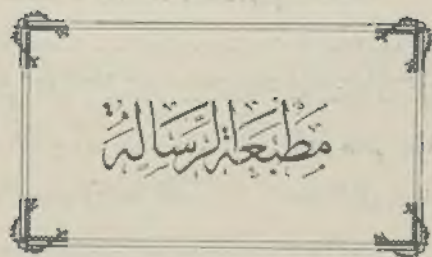 مَطْبَعَةُ الرِّسَالَةِ